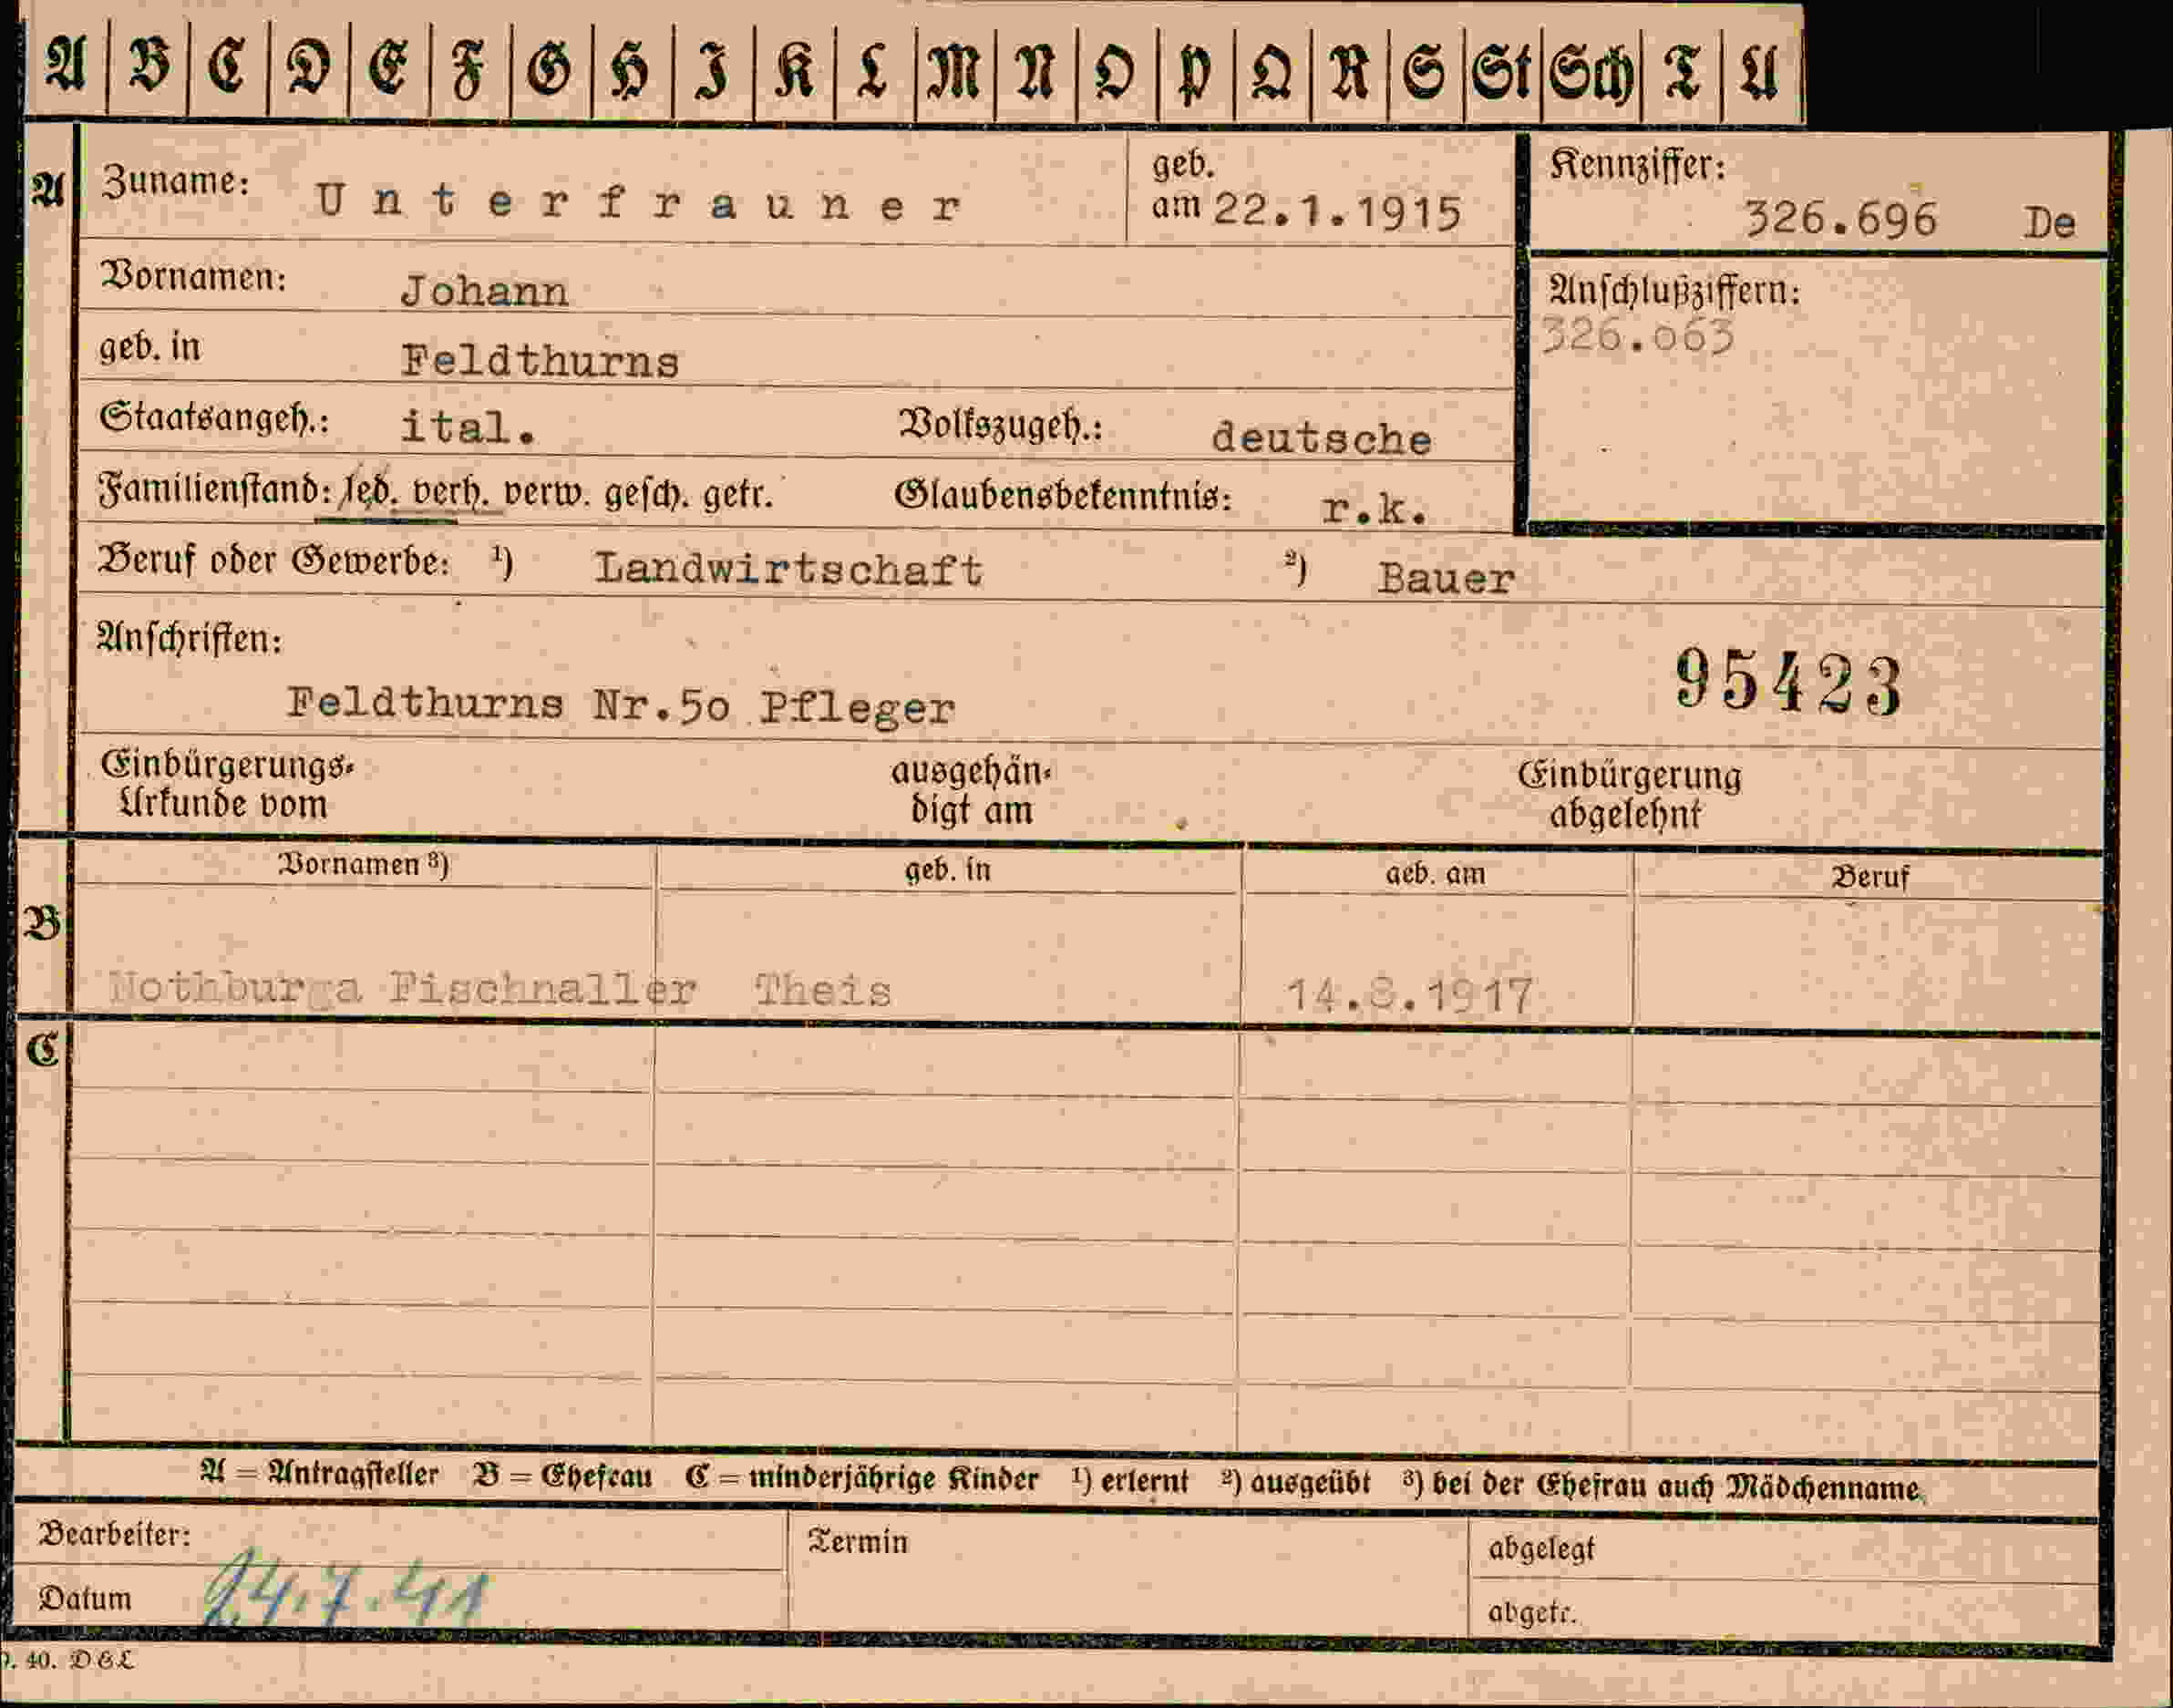 A B C D E F G H I K L M N O P Q R S St Sch T U
A Zuname: Unterfrauner geb. am 22.1.1915 Kennziffer: 326.696 De
Vornamen: Johann Anschlußziffern:
326.063
geb. in Feldthurns
Staatsangeh.: ital. Volkszugeh.: deutsche
Familienstand: led. verh. verw. gesch. getr. Glaubensbekenntnis: r.k.
Beruf oder Gewerbe: ¹) Landwirtschaft ²) Bauer
Anschriften:
95423
Feldthurns Nr.5o Pfleger
Einbürgerungs- ausgehän- Einbürgerung
Urkunde vom digt am abgelehnt
Vornamen ³) geb. in geb. am Beruf
B
Nothburga Fischnaller Theis 14.8.1917
C
A = Antragsteller B = Ehefrau C = minderjährige Kinder ¹) erlernt ²) ausgeübt ³) bei der Ehefrau auch Mädchenname
Bearbeiter: Termin abgelegt
Datum 24.7.41 abgetr.
40. DGL